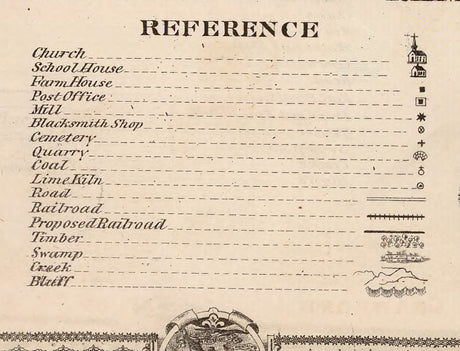 REFERENCE
Church
School House
Farm House
Post Office
Mill
Blacksmith Shop
Cemetery
Quarry
Coal
Lime Kiln
Road
Railroad
Proposed Railroad
Timber
Swamp
Creek
Bluff